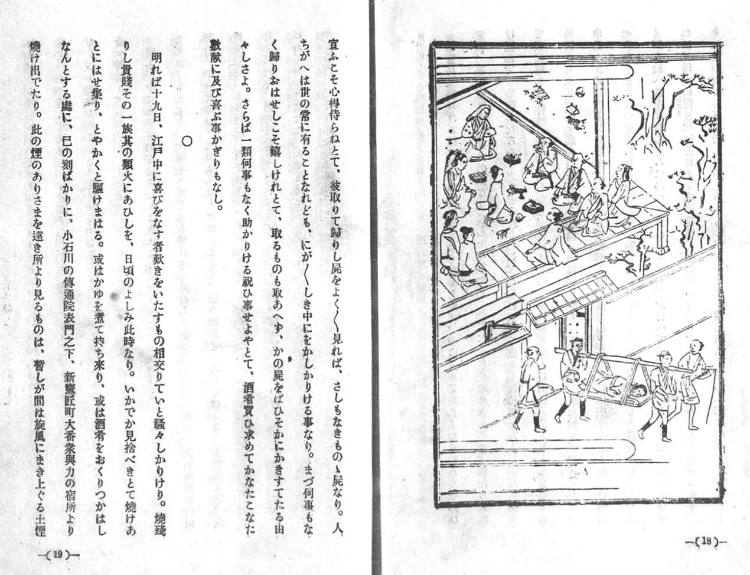 宣ふこそ心得侍らねとて、彼取りて歸りし屍をよく〳〵見れば、さしもなきものゝ屍なり。人
ちがへは世の常に有ることなれども、にが〳〵しき中にをかしかりける事なり。まづ何事もな
く歸りおはせしこそ嬉しけれとて、取るものも取あへず、かの屍をばひそかにかきすてたる由
々しさよ。さらば一類何事もなく助かりける祝ひ事せよやとて、酒肴買ひ求めてかなたこなた
數献に及び喜ぶ事かぎりもなし。
○
明れば十九日、江戸中に喜びをなす者歎きをいたすもの相交りていと騷々しかりけり。燒殘
りし貴賤その一族其の類火にあひしを、日頃のよしみ此時なり。いかでか見捨べきとて燒けあ
とにはせ集り、とやかくと驅けまはる。或はかゆを煮て持ち來り、或は酒肴をおくりつかはし
なんとする處に、巳の刻ばかりに、小石川の傳通院表門之下、新鷹匠町大番衆與力の宿所より
燒け出でたり。此の煙のありさまを遠き所より見るものは、暫しが間は旋風にまき上ぐる土煙
—(19)—
—(18)—